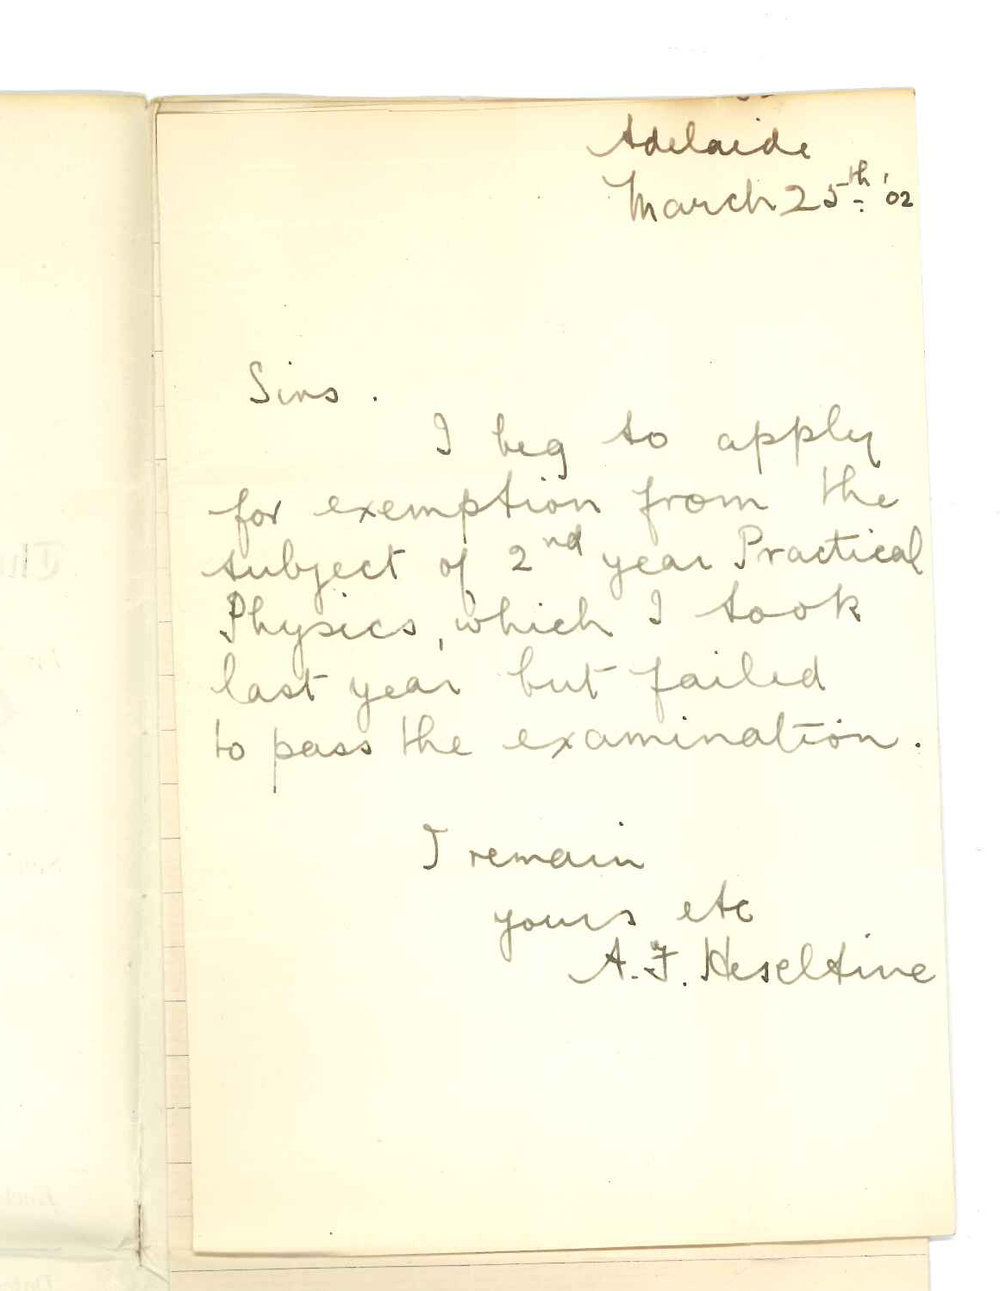 Adelaide
March 25th '02
Sirs.
I beg to apply
for exemption from the
subject of 2nd year Practical
Physics, which I took
last year but failed
to pass the examination.
I remain
yours etc
A. F. Heseltine